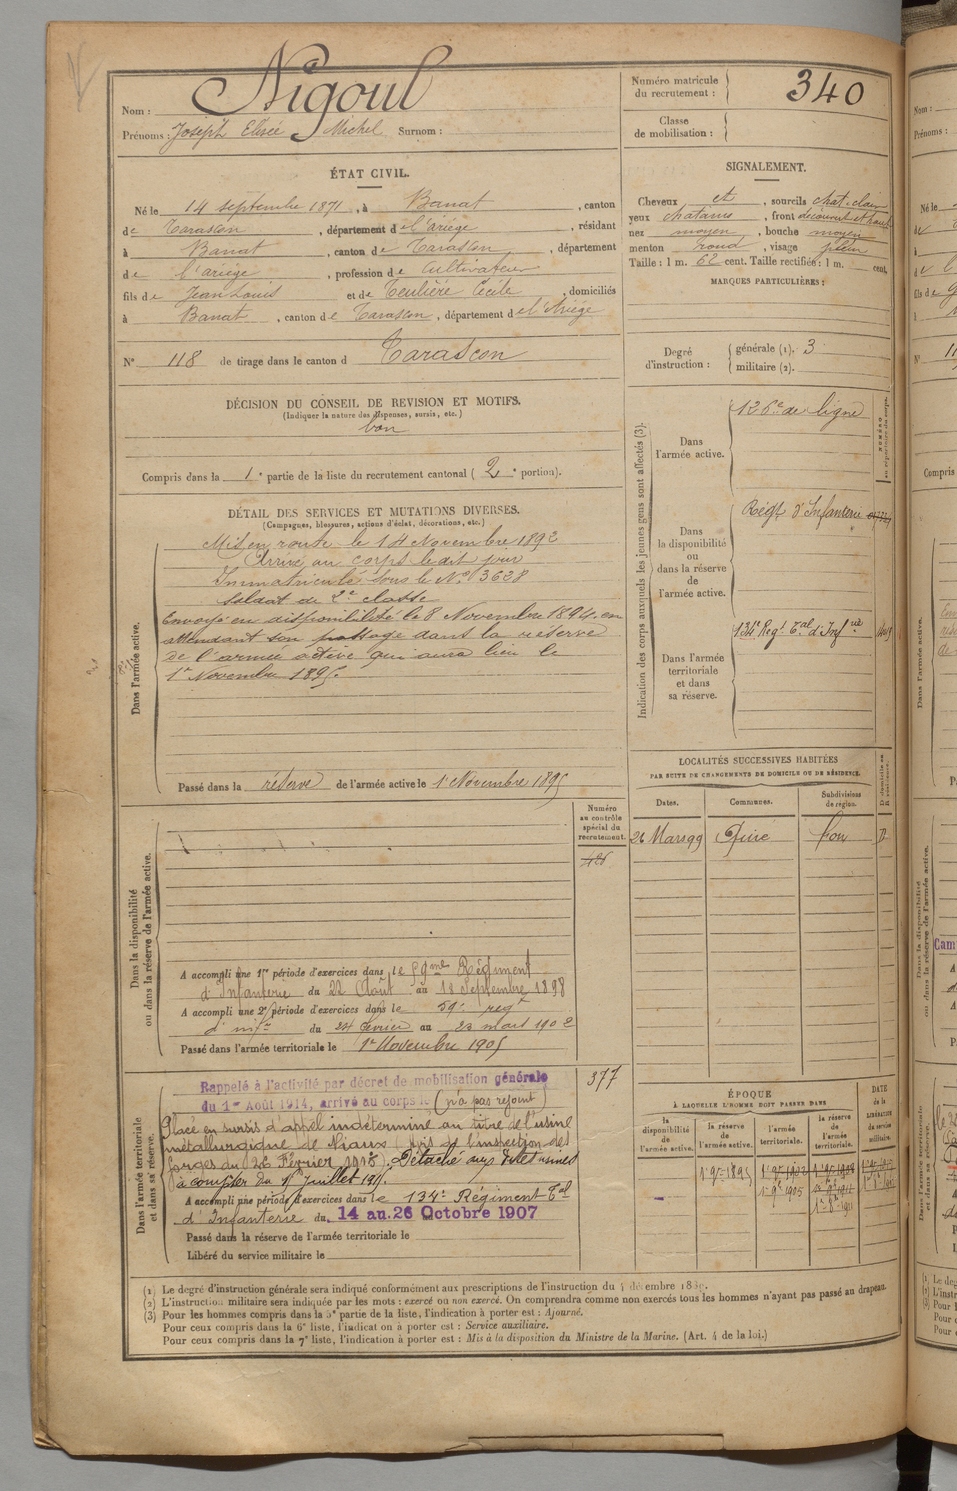 Nom : Nigoul
Prénoms : Joseph Elisée Michel Surnom :
Numéro matricule du recrutement : 340
Classe de mobilisation :
ÉTAT CIVIL.
Né le 14 septembre 1871, à Banat, canton
de Tarascon, département de l'ariège, résidant
à Banat, canton de Tarascon, département
de l'ariège, profession de Cultivateur
fils de Jean Louis et de Teulière Cécile, domiciliés
à Banat, canton de Tarascon, département de l'Ariège
N° 118 de tirage dans le canton d Tarascon
SIGNALEMENT.
Cheveux et, sourcils chat. clair
yeux chatains, front découvert et haut
nez moyen, bouche moyen
menton rond, visage plein
Taille : 1 m. 62 cent. Taille rectifiée : 1 m. cent.
MARQUES PARTICULIÈRES :
Degré d'instruction : générale (1). 3
militaire (2).
DÉCISION DU CONSEIL DE REVISION ET MOTIFS.
(Indiquer la nature des dispenses, sursis, etc.)
bon
Compris dans la 1e partie de la liste du recrutement cantonal ( 2e portion).
DÉTAIL DES SERVICES ET MUTATIONS DIVERSES.
(Campagnes, blessures, actions d'éclat, décorations, etc.)
Dans l'armée active.
Mis en route le 14 Novembre 1892
Arrivé au corps le dit jour
Immatriculé sous le N° 3628
Soldat de 2e classe
Envoyé en disponibilité le 8 Novembre 1894 en
attendant son passage dans la réserve
de l'armée active qui aura lieu le
1er Novembre 1895.
Passé dans la réserve de l'armée active le 1er Novembre 1895
Indication des corps auxquels les jeunes gens sont affectés (3).
Dans l'armée active.
126e de ligne
Dans la disponibilité ou dans la réserve de l'armée active.
Régt d'Infanterie
Dans l'armée territoriale et dans sa réserve.
134e Regt Tal d'Infrie
LOCALITÉS SUCCESSIVES HABITÉES
PAR SUITE DE CHANGEMENTS DE DOMICILE OU DE RÉSIDENCE.
Dates. Communes. Subdivisions de région.
26 Mars 99 D
Dans la disponibilité ou dans la réserve de l'armée active.
Numéro au contrôle spécial du recrutement.
A accompli une 1re période d'exercices dans le 59me Régiment
d'Infanterie du 22 Août au 18 Septembre 1898
A accompli une 2e période d'exercices dans le 59e regt
d'infie du 24 fevrier au 23 mars 1902
Passé dans l'armée territoriale le 1er Novembre 1905
377
Dans l'armée territoriale et dans sa réserve.
Rappelé à l'activité par décret de mobilisation générale
du 1er Août 1914, arrivé au corps le (n'a pas rejoint)
Placé en sursis d'appel indéterminé au titre de l'usine
métallurgique de Niaux (avis de l'inspection des
forges du 26 Février 1918). Détaché aux dites usines
à compter du 1er juillet 1917.
A accompli une période d'exercices dans le 134e Régiment Tal
d'Infanterie du 14 au 26 Octobre 1907
Passé dans la réserve de l'armée territoriale le
Libéré du service militaire le
ÉPOQUE
À LAQUELLE L'HOMME DOIT PASSER DANS
la disponibilité de l'armée active.
la réserve de l'armée active.
l'armée territoriale.
la réserve de l'armée territoriale.
DATE de la LIBÉRATION du service militaire.
1er 9bre 1895
1er 9bre 1905
(1) Le degré d'instruction générale sera indiqué conformément aux prescriptions de l'instruction du décembre
(2) L'instruction militaire sera indiquée par les mots : exercé ou non exercé. On comprendra comme non exercés tous les hommes n'ayant pas passé au drapeau.
(3) Pour les hommes compris dans la 3e partie de la liste, l'indication à porter est : Ajourné.
Pour ceux compris dans la 6e liste, l'indication à porter est : Service auxiliaire.
Pour ceux compris dans la 7e liste, l'indication à porter est : Mis à la disposition du Ministre de la Marine. (Art. 4 de la loi.)